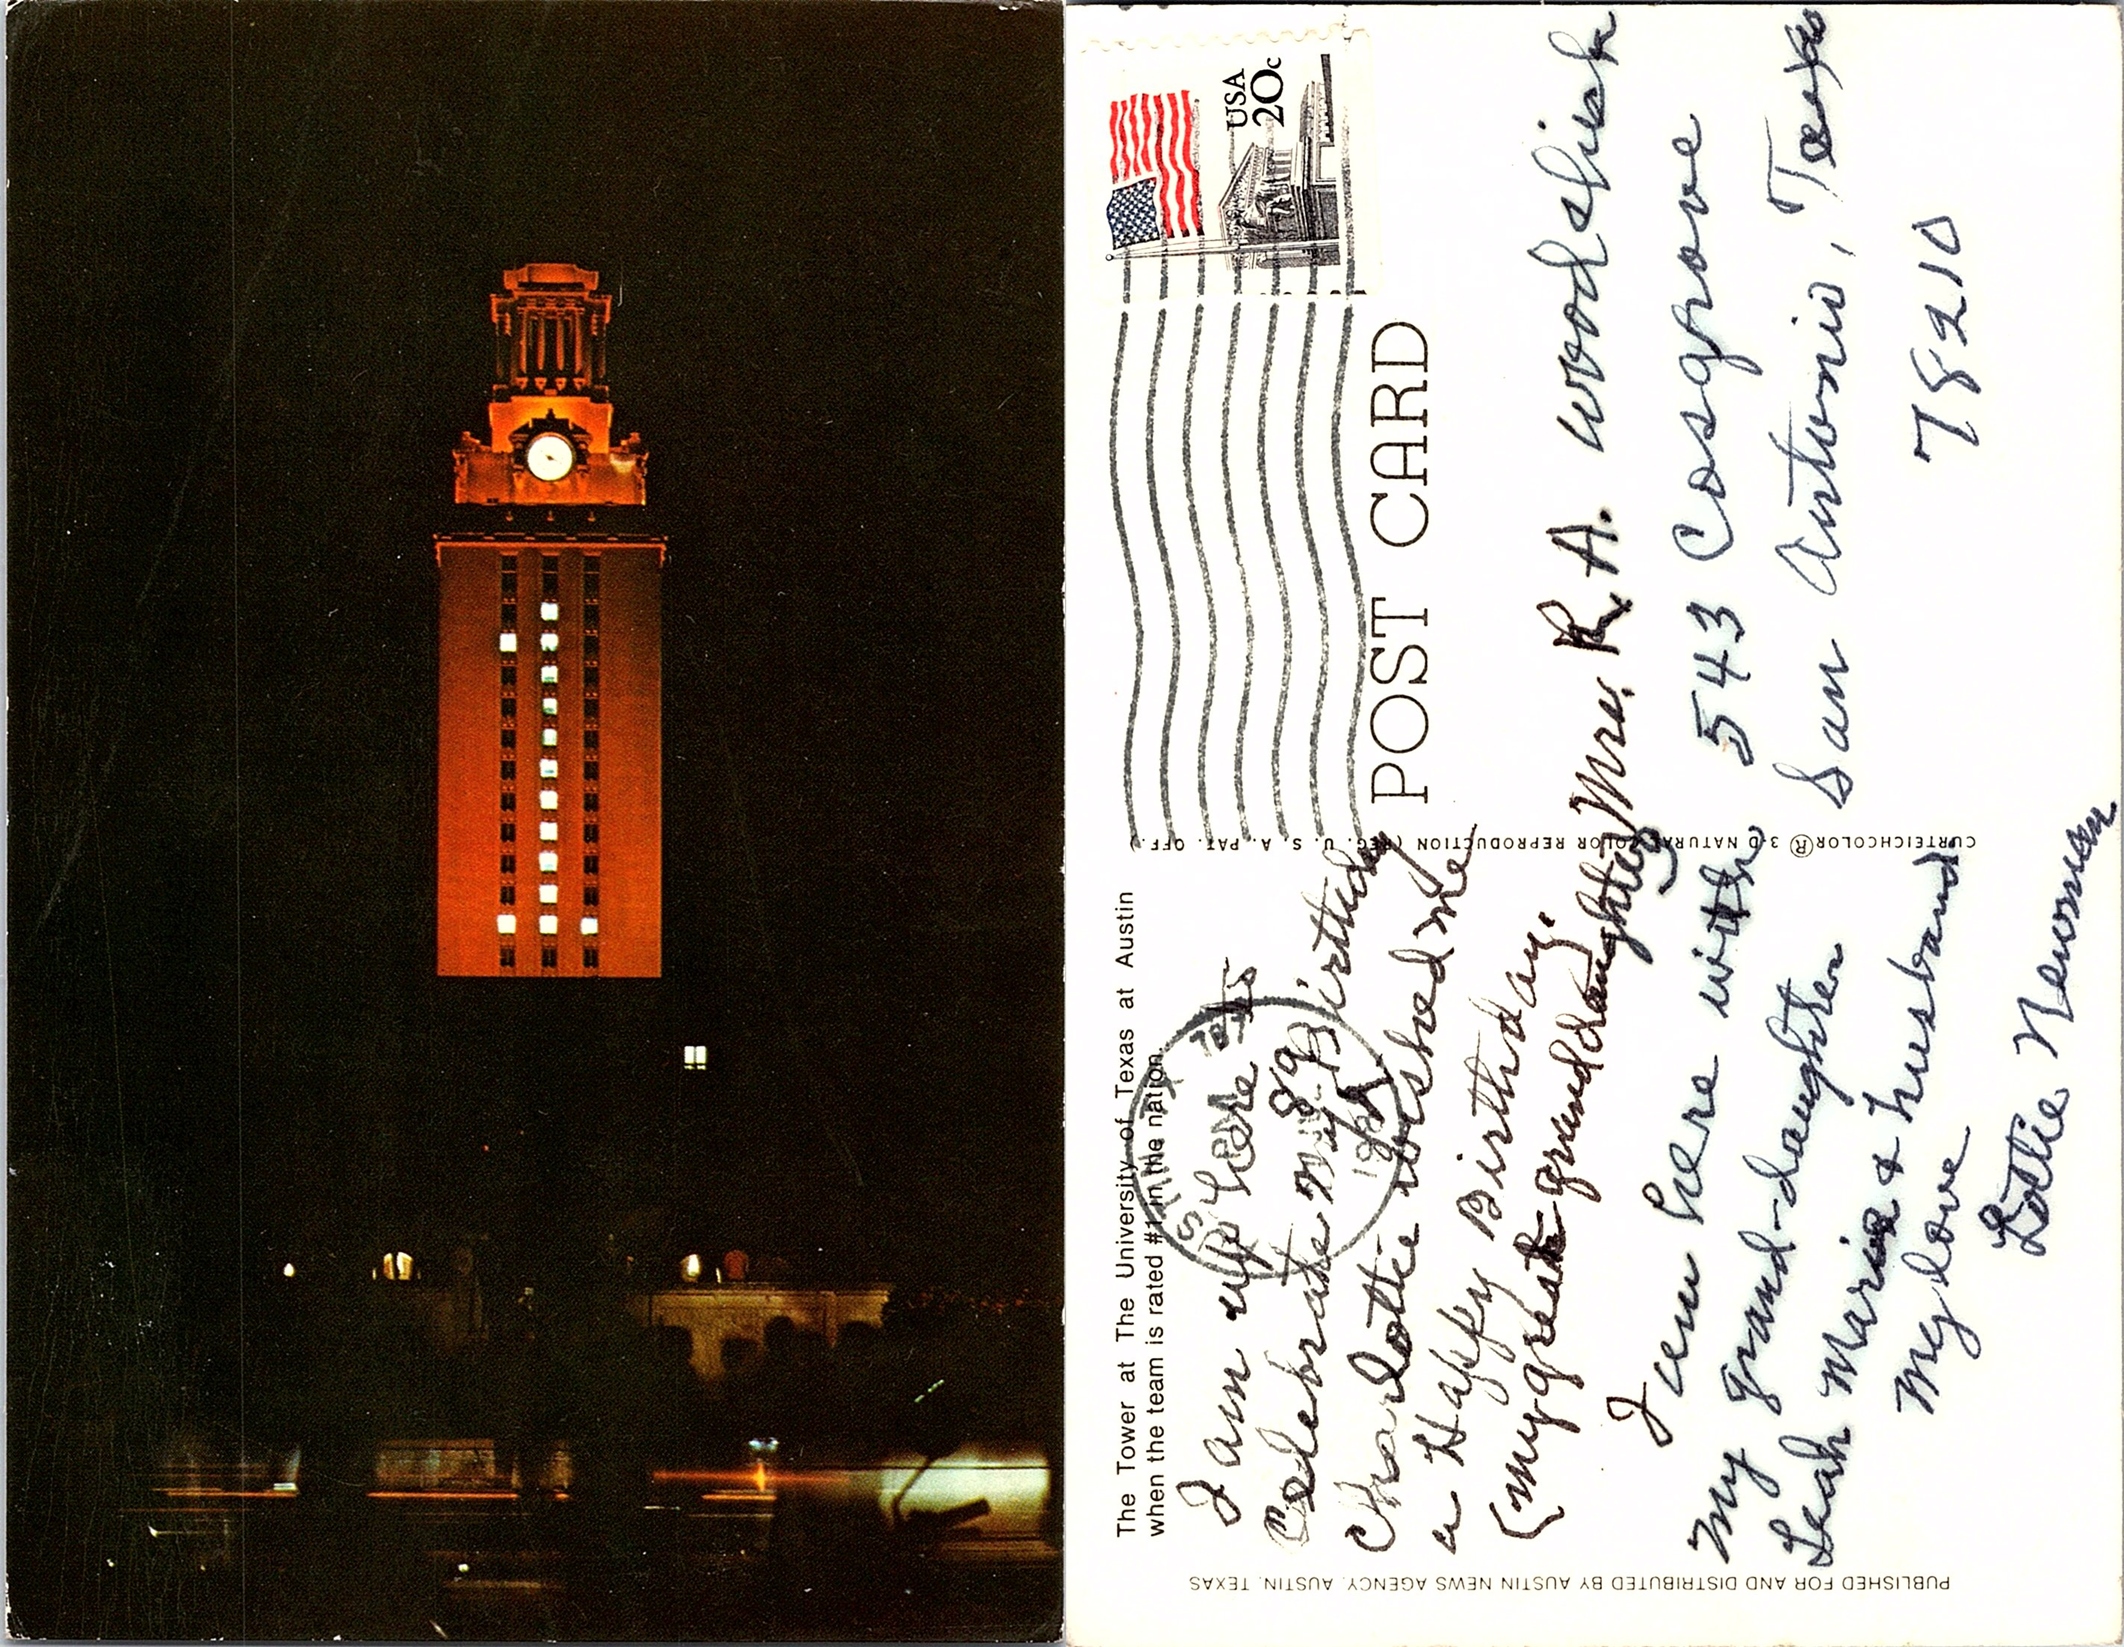 The Tower at The University of Texas at Austin
when the team is rated #1 in the nation.
USA
20c
POST CARD
I am up here to
Celebrate my 89 Birthday
Charlotte wished me
a Happy Birthday.
(my great-granddaughter)
I am here with
my grand-daughter
Leah Marie & husband
My love
Lottie Newman
Mrs. R. A. Woodslish
543 Cosgrove
San Antonio, Texas
78210
CURTEICHCOLOR® 3-D NATURAL COLOR REPRODUCTION (REG. U. S. A. PAT. OFF.)
PUBLISHED FOR AND DISTRIBUTED BY AUSTIN NEWS AGENCY, AUSTIN, TEXAS